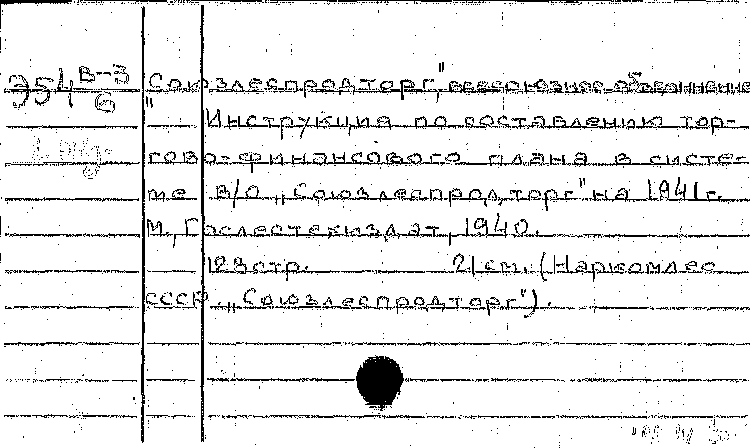 Э54 В-3 Союзлеспродторг", всесоюзное объединение
6 "
Инструкция по составлению тор-
гово-финансового плана в систе-
ме В/О „Союзлеспродторг" на 1941 г.
М., Гослестехиздат, 1940.
123 стр. 21 см. (Наркомлес
СССР. „Союзлеспродторг").